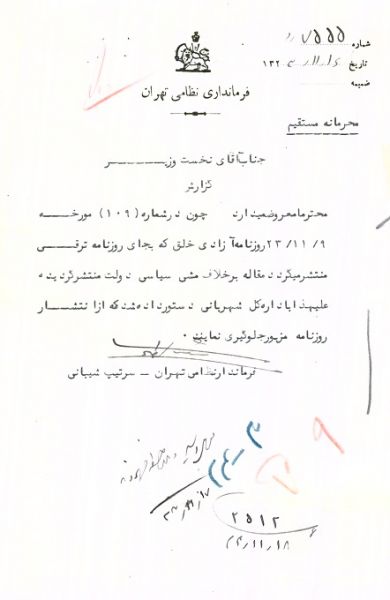 شماره ۷۵۵۵
تاریخ
۱۳۲
ضمیمه
فرمانداری نظامی تهران
محرمانه مستقیم
جناب آقای نخست وزیر
گزارش
محترما معروض میدارد چون در شماره (۱۰۹) مورخه
۲۳/۱۱/۹ روزنامه آزادی خلق که بجای روزنامه ترقی
منتشر میگردد مقاله برخلاف مشی سیاسی دولت منتشر گردیده
علیهذا باداره کل شهربانی دستور داده شد که از انتشار
روزنامه مزبور جلوگیری نمایند.
فرماندار نظامی تهران - سرتیپ شیبانی
۹
۲۵۱۲
۲۳/۱۱/۱۸